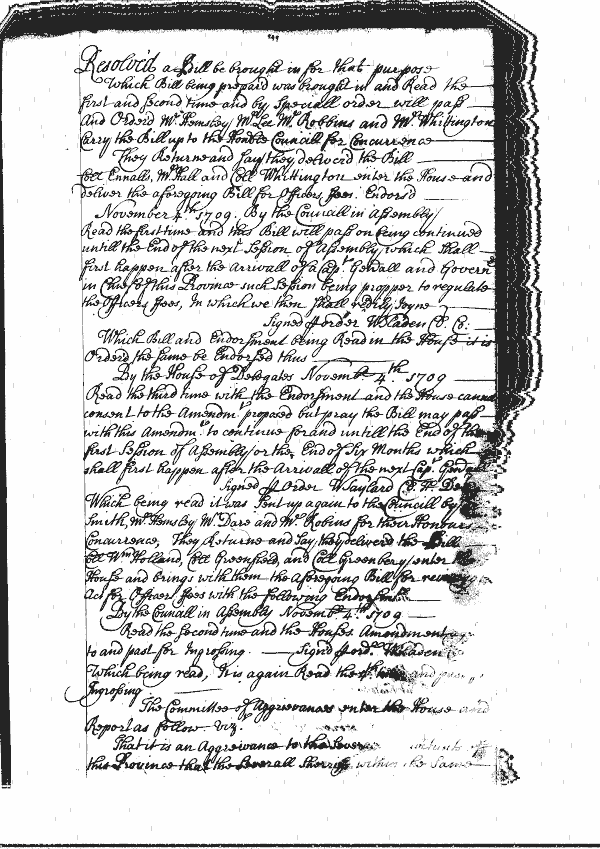 Resolved a Bill be brought in for that purpose
Which Bill being prepard was brought in and Read the
first and second time and by Speciall order will pass
And Orderd Mr. Hemsley Mr. Lee Mr. Robbins and Mr. Whittington
Carry the Bill up to the Honble Councill for Concurrence
They Returne and Say they deliverd the Bill
Coll Ennalls, Mr. Hall and Coll Whittington enter the House and
deliver the aforegoing Bill for Officers ffees. Endors'd
November 4th. 1709. By the Councill in Assembly
Read the first time and this Bill will pass on being continued
untill the End of the next Session of Assembly which shall
first happen after the Arrivall of a Capt. Genall and Govern
in Chief of this Province such Session being propper to regulate
the Officers ffees, In which we then shall readily Joyne
Signed p order W Bladen Cl. Co.
Which Bill and Endorsment being Read in the House it is
Orderd the same be Endorsed thus
By the House of Delegates Novembr. 4th. 1709
Read the third time with the Endorsment and the House cannot
consent to the Amendmt. proposed but pray the Bill may pass
with this Amendmt. to continue for and untill the End of the
first Session of Assembly or the End of Six Months which
shall first happen after the Arrivall of the next Capt. Genall
Signed p Order W Taylard Cl. H. Del
Which being read it was Sent up again to the Councill by
Smith, Mr. Hemsley Mr. Dare and Mr. Robins for their Honours
Concurrence, They Returne and Say they deliverd the Bill
Coll Wm Holland, Coll Greenfield, and Coll Greenbery enter the
House and brings with them the aforegoing Bill for
Act for Officers ffees with the following Endorsmt.
By the Councill in Assembly Novembr. 4th. 1709
Read the Second time and the Houses Amendment
to and past for Ingrossing. Signd p ordr. W Bladen
Which being read, It is again Read the and
Ingrossing
The Committee of Aggrievances enter the House and
Report as follow. vizt.
That it is an Aggreivance to the Severall
this Province that the Severall Sherriffs within the Same